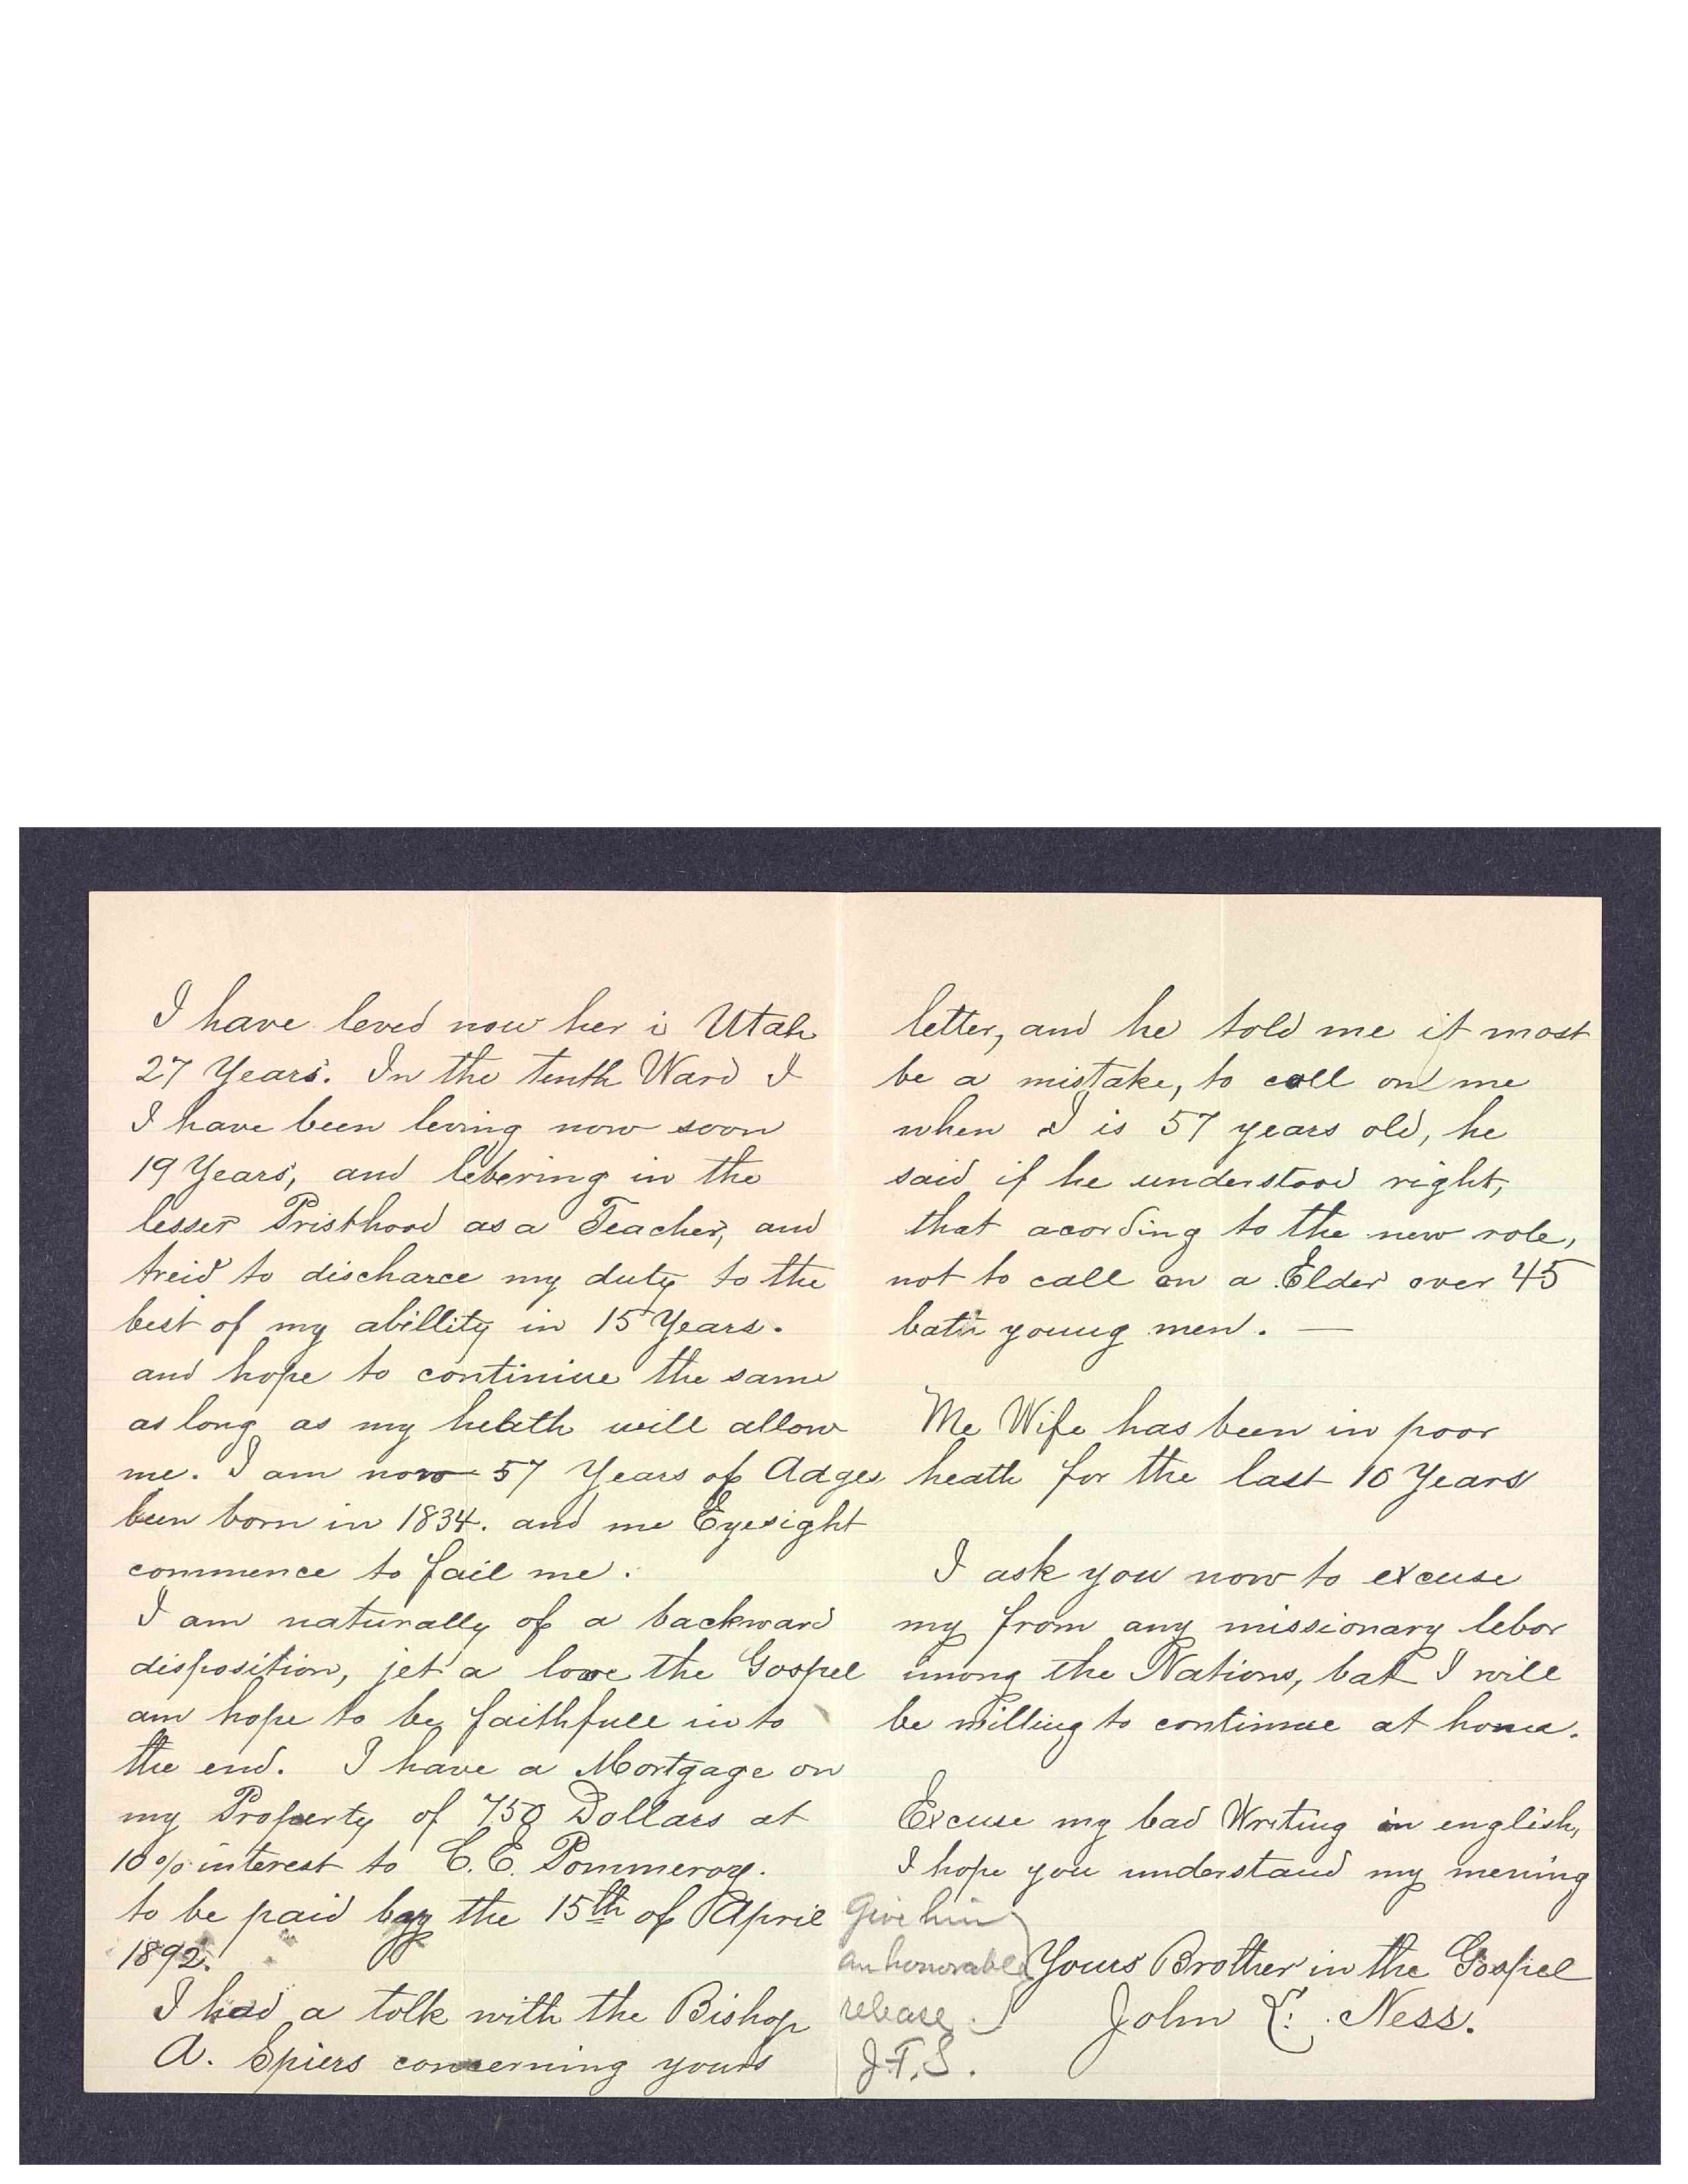 I have leved now her i Utah
27 Years. In the tenth Ward I
I have been leving now soon
19 Years, and lebering in the
lesser Pristhood as a Teacher, and
treid to discharce my duty to the
best of my abillity in 15 Years.
and hope to continiue the same
as long as my helath will allow
me. I am now 57 Years of Adges
been born in 1834. and me Eyesight
commence to fail me.
I am naturally of a backward
disposition, jet a love the Gospel
am hope to be faithfull in to
the end. I have a Mortgage on
my Property of 750 Dollars at
10% interest to C.E. Pommeroy.
to be paid by the 15th of April
1892.
I had a tolk with the Bishop
A. Spiers concerning yours
letter, and he told me it most
be a mistake, to coll on me
when I is 57 years old, he
said if he understood right,
that acording to the new role,
not to call on a Elder over 45
batu young men. —
Me Wife has been in poor
heath for the last 10 Years
I ask you now to excuse
my from any missionary lebor
imong the Nations, bat I will
be willing to continue at home.
Excuse my bad Writing in english,
I hope you understand my mening
Yours Brother in the Gospel
John E. Ness.
Give him
an honorable
release.
J.F.S.